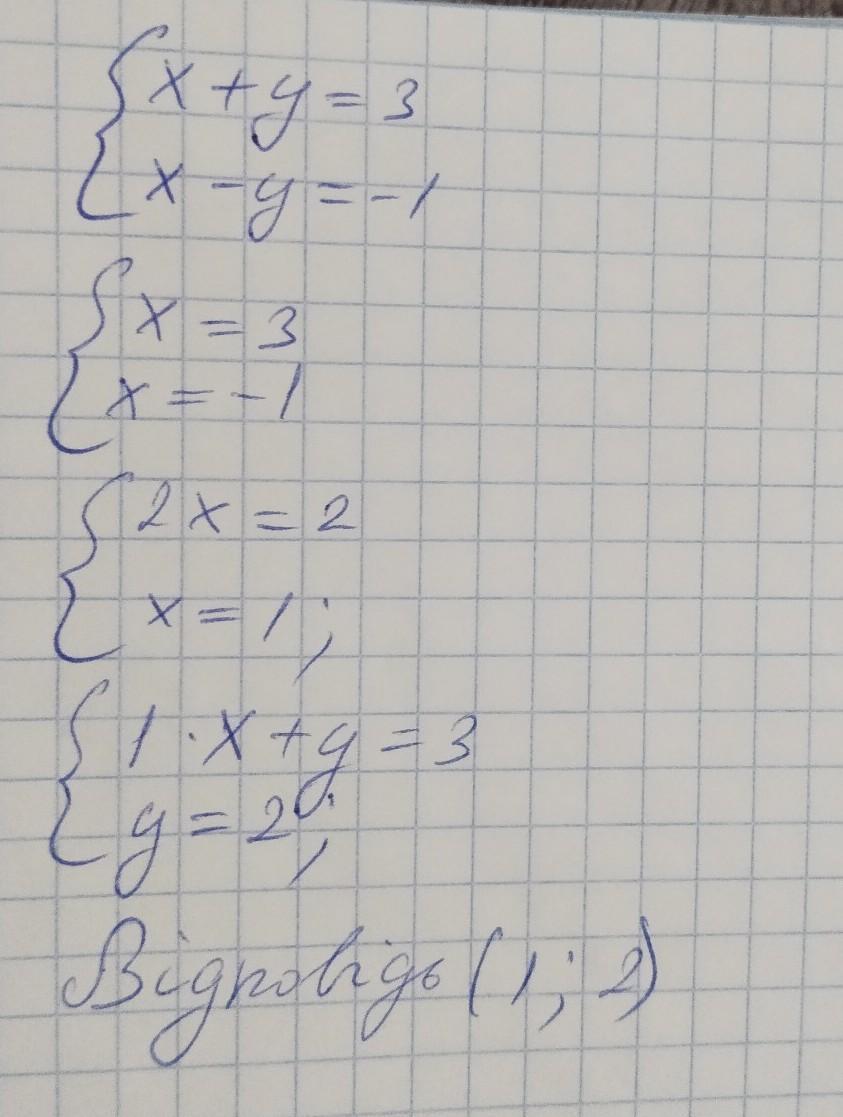 x + y = 3
x - y = -1
x = 3
x = -1
2x = 2
x = 1;
1 · x + y = 3
y = 2;
Відповідь (1; 2)